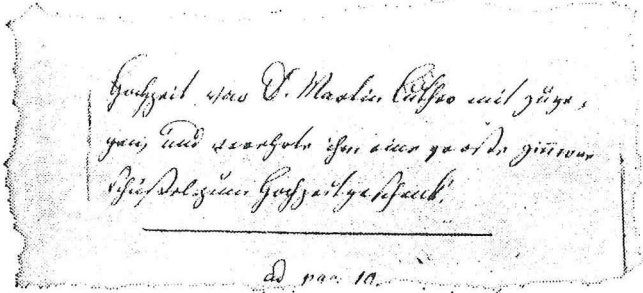 Hochzeit von D. Martin Luther mit zuge-
gen, und verehrte ihm eine große zinnerne
Schüßel zum Hochzeitgeschenk.
ad pag. 10.